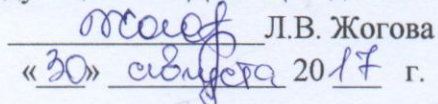 Л.В. Жогова
«30» августа 2017 г.